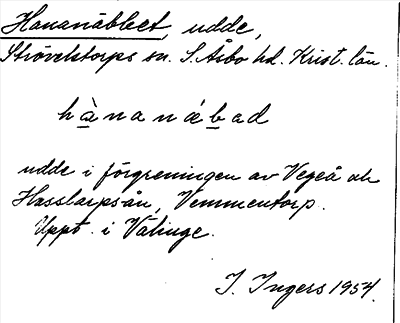 Hananäbbet, udde,
Strövelstorps sn. S. Åsbo hd. Krist. län.
hànanǽbad
udde i förgreningen av Vegeå och
Hasslarpsån, Vemmentorp.
Uppt. i Välinge.
I. Ingers 1954.